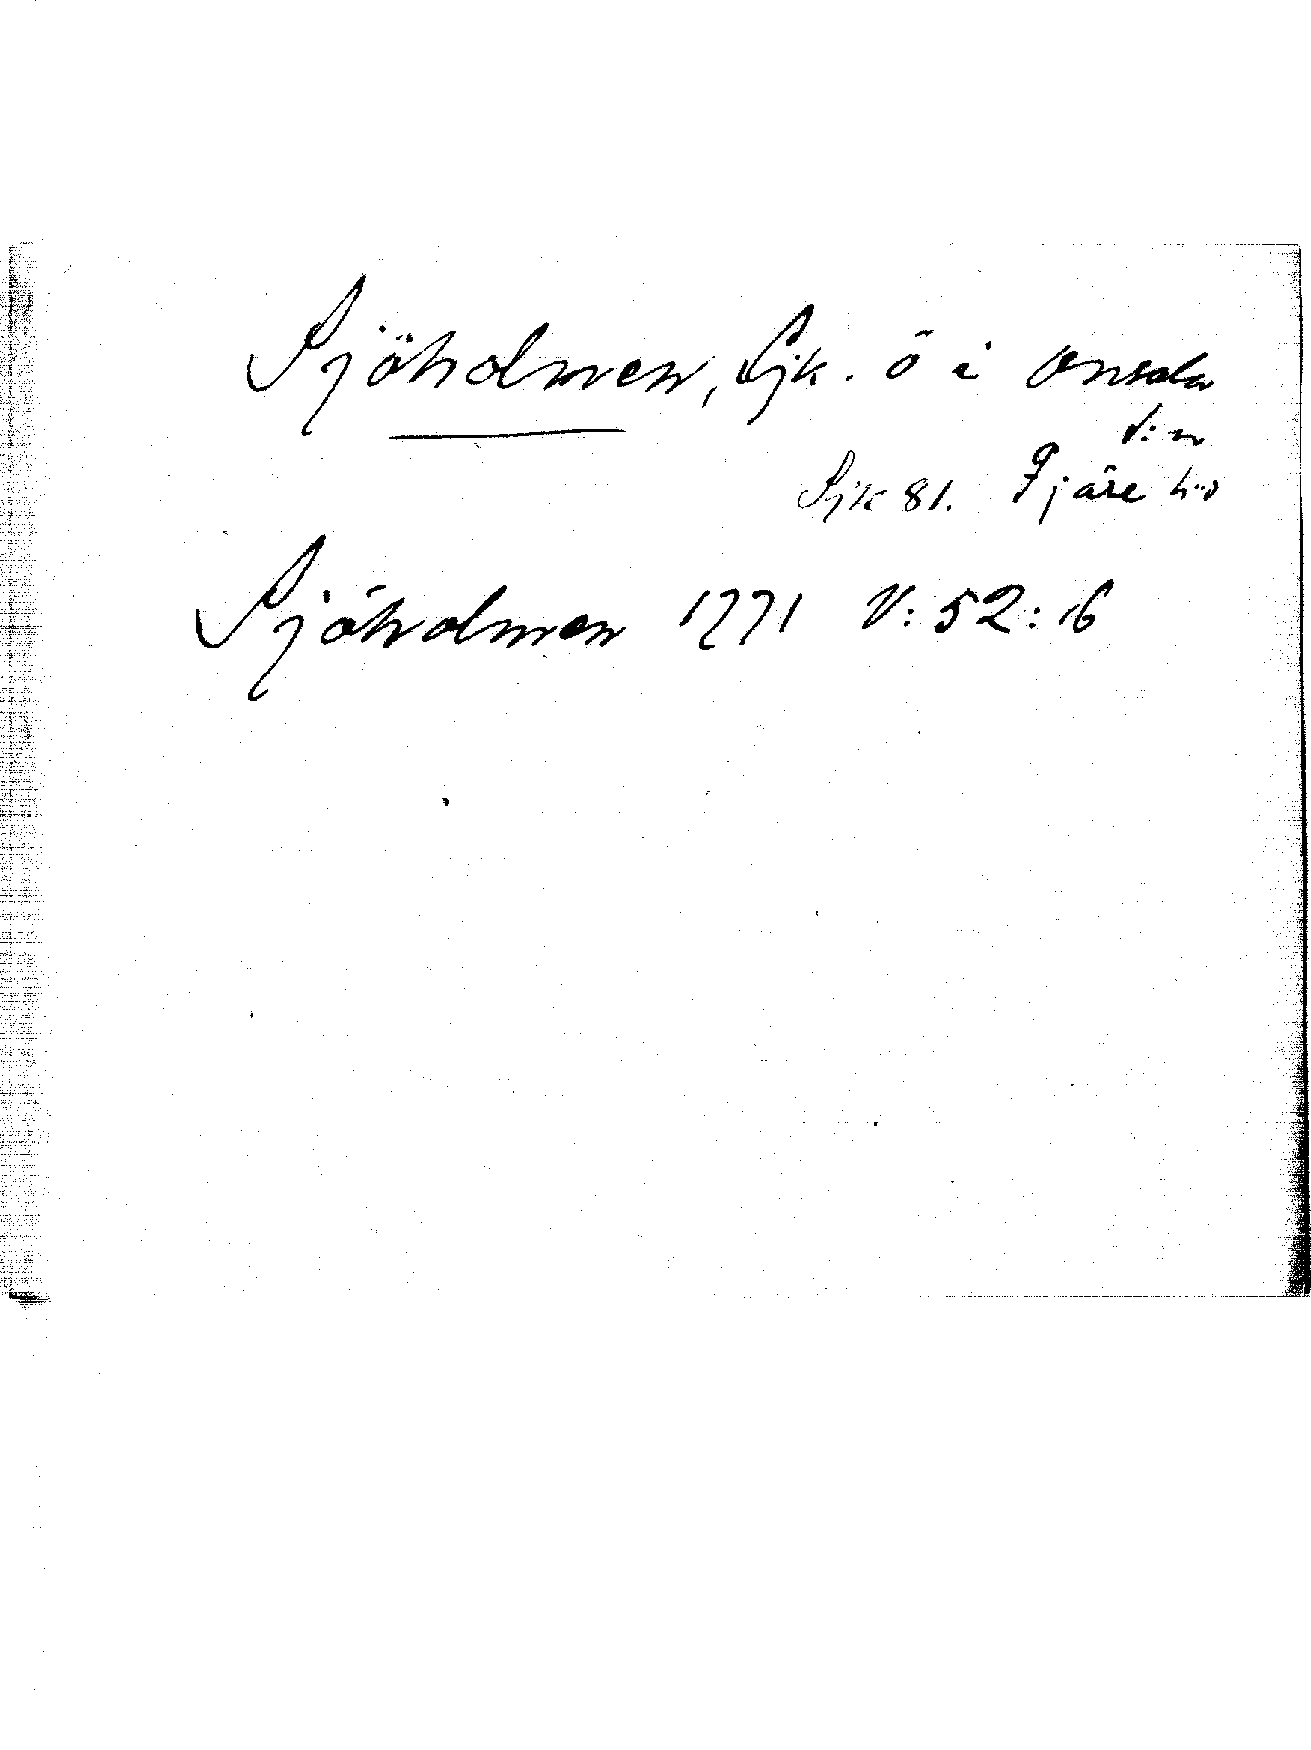 Sjöholmen, Sjk. ö i Onsala
s:n
Sjk 81. Fjäre h:d
Sjöholmen 1771 V: 52: 16